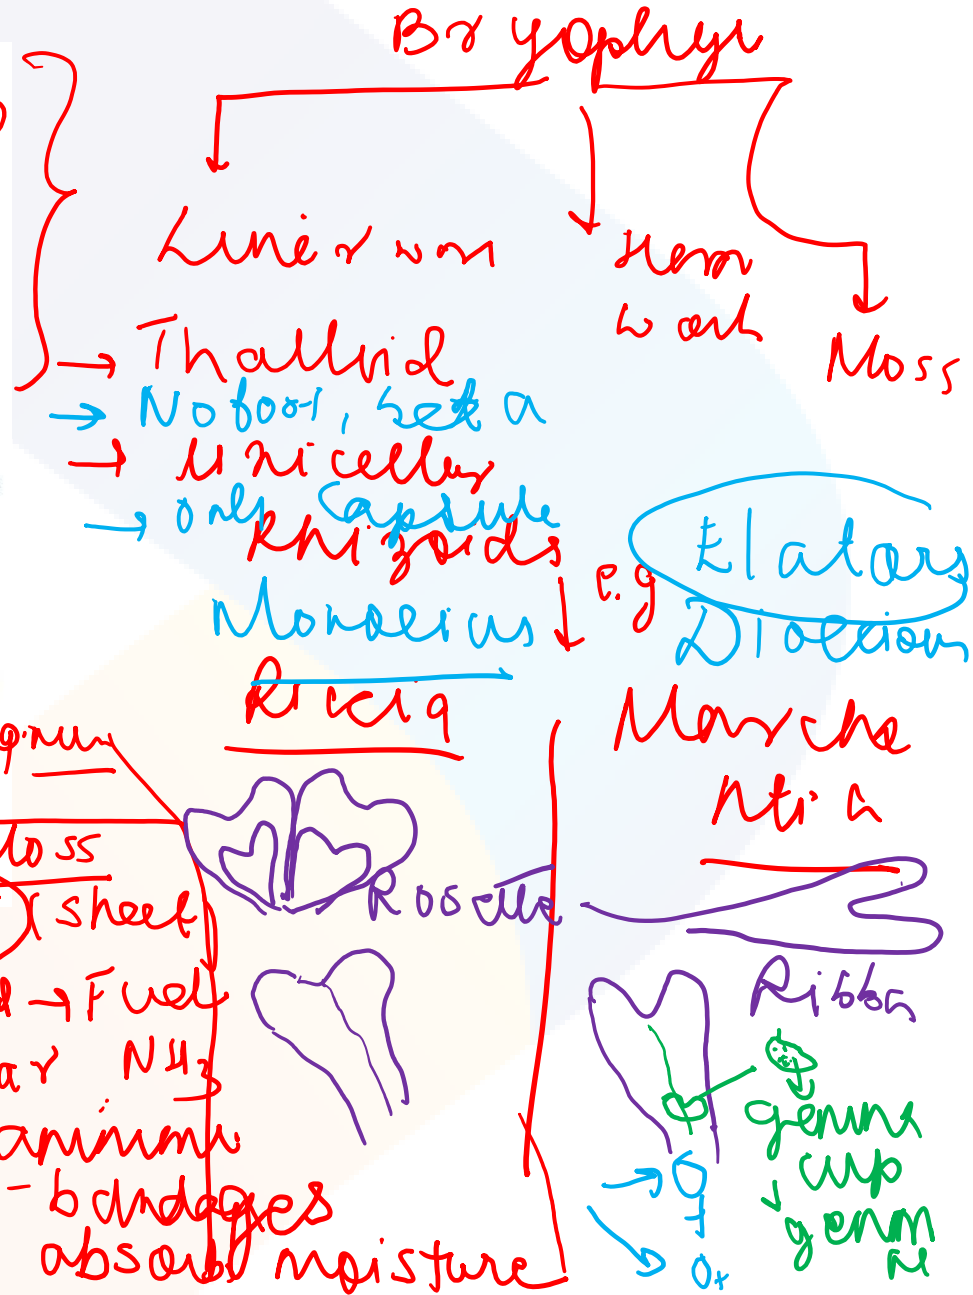 Bryophyt
Liverwort
Horn
wort
Moss
→ Thalloid
→ No foot, seta
→ Unicellular
→ only Capsule
Rhizoids
Elaters
e.g
Monoecious
Dioecious
Riccia
Marcha
ntia
Rosette
Ribbon
gemma
cup
gemm
ae
oss
(sheet
→ Fuel
ar NH3
- bandages
absorb moisture